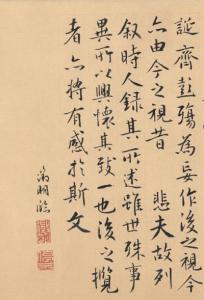 誕齊彭殤為妄作後之視今
亦由今之視昔　悲夫故列
敘時人錄其所述雖世殊事
異所以興懷其致一也後之攬
者亦將有感於斯文